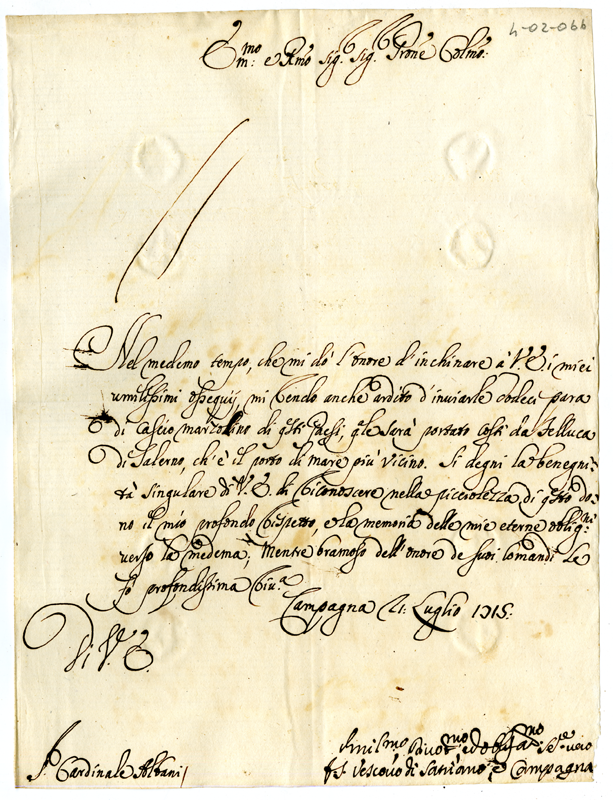 4-02-066
E.mo e Rmo Sig.r Sig.r Prone Colmo:
Nel medemo tempo, che mi dò l'onore d'inchinare à V. E. i miei
umilissimi ossequij, mi rendo anche ardito d'inviarle dodeci para
di Cascio marzollino di q.sti Paesi, q.le serà portato costì da Felluca
di Salerno, ch'è il porto di mare più vicino. Si degni la benegni-
tà singulare di V. E. di riconoscere nella picciolezza di q.sto do-
no il mio profondo rispetto, e la memoria delle mie eterne oblig.ni
verso la medema; Mentre bramoso dell'onore de suoi Comandi le
fo profondissima riv.a
Campagna 21. Luglio 1715.
Di V.E.
S.r Cardinale Albani
Umil.mo Divot.mo ed Oblig.mo Se.re vero
Vescovo di Satriano, e Campagna